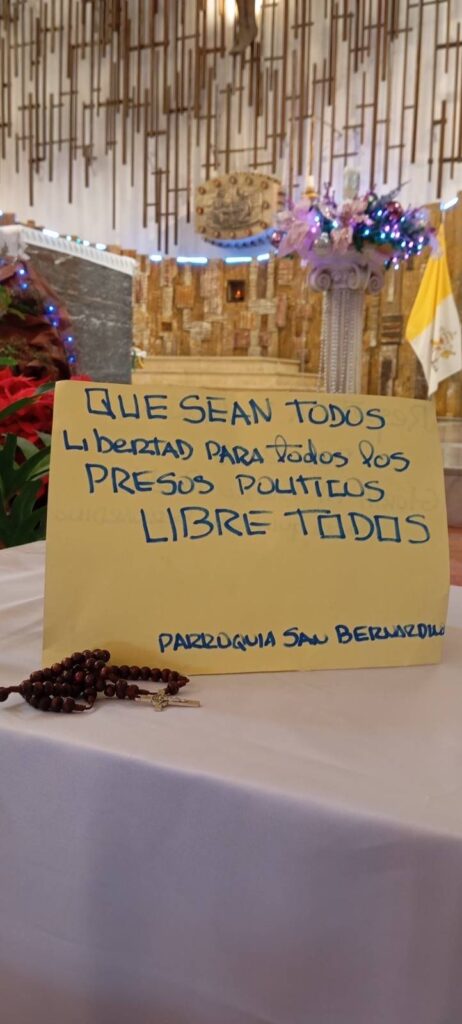 QUE SEAN TODOS
LIBERTAD PARA todos los
PRESOS POLITICOS
LIBRE TODOS
PARROQUIA SAN BERNARDINO